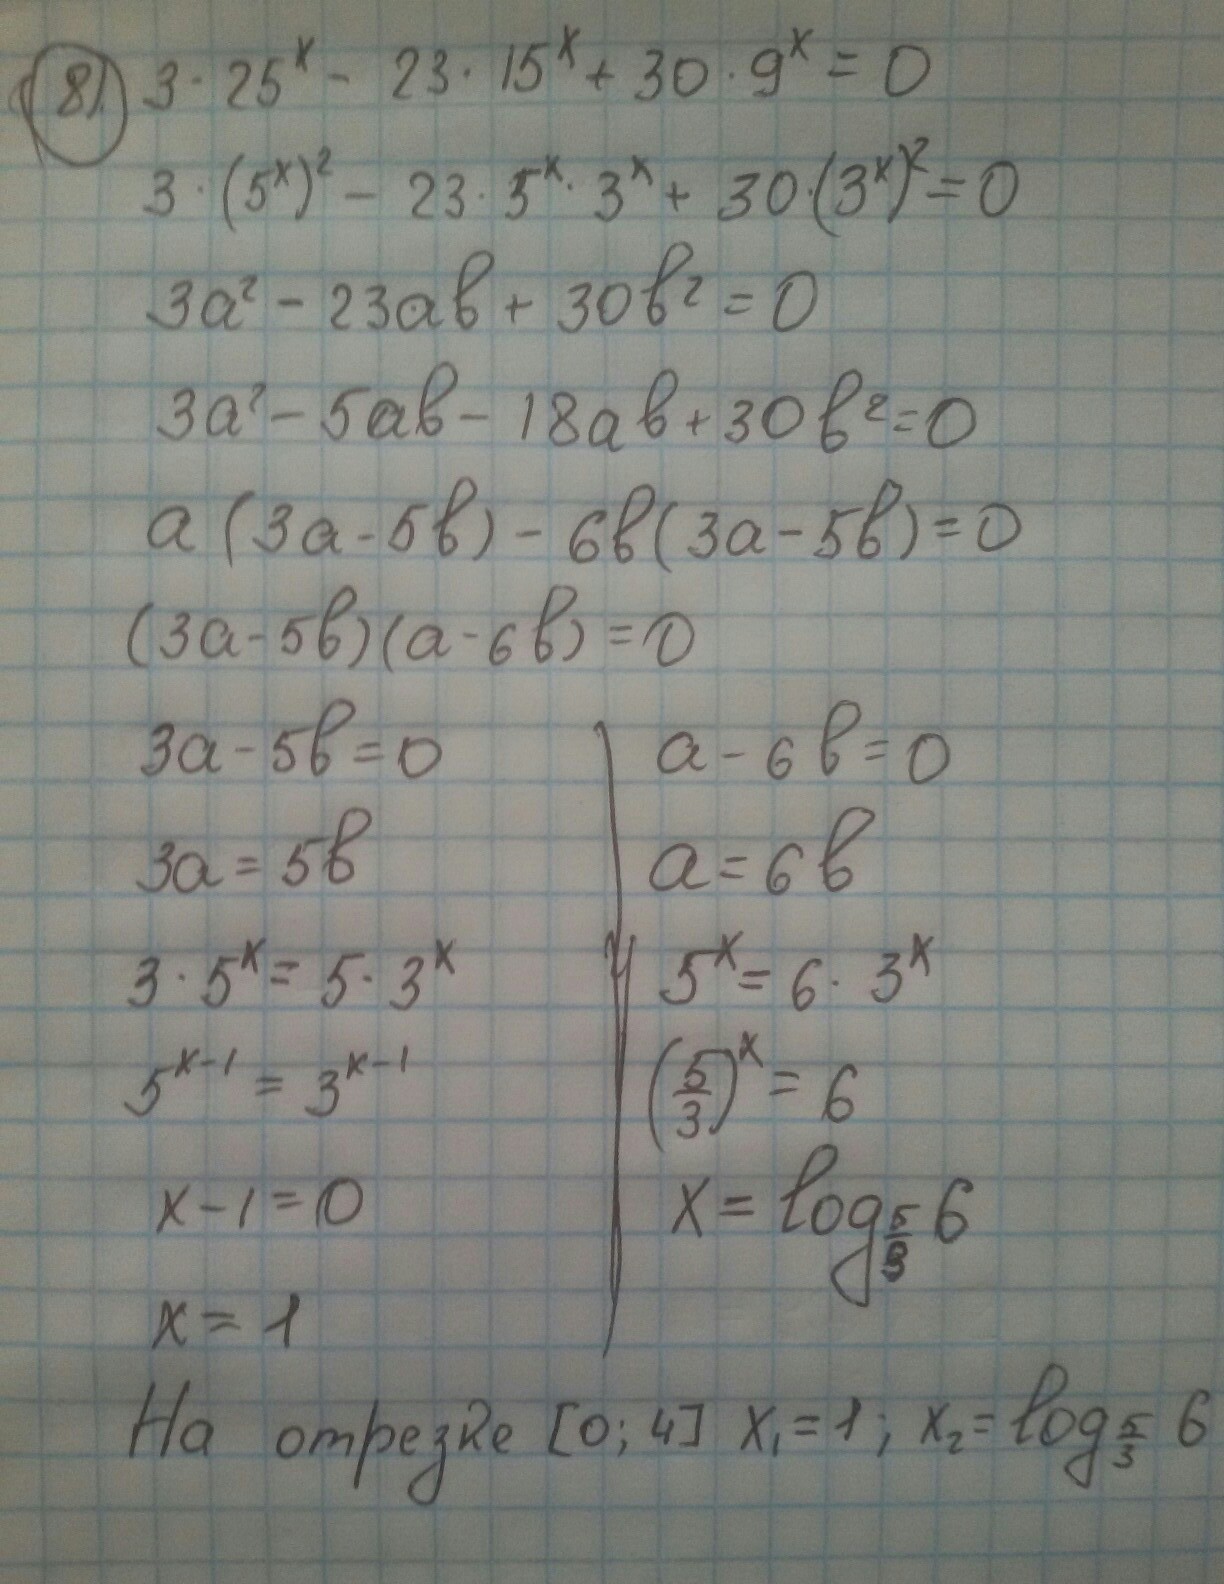 8) 3·25ˣ - 23·15ˣ + 30·9ˣ = 0
3·(5ˣ)² - 23·5ˣ·3ˣ + 30·(3ˣ)² = 0
3a² - 23ab + 30b² = 0
3a² - 5ab - 18ab + 30b² = 0
a(3a - 5b) - 6b(3a - 5b) = 0
(3a - 5b)(a - 6b) = 0
3a - 5b = 0
3a = 5b
3·5ˣ = 5·3ˣ
5ˣ⁻¹ = 3ˣ⁻¹
x - 1 = 0
x = 1
a - 6b = 0
a = 6b
5ˣ = 6·3ˣ
(5/3)ˣ = 6
x = log_{5/3} 6
На отрезке [0; 4] x₁ = 1; x₂ = log_{5/3} 6